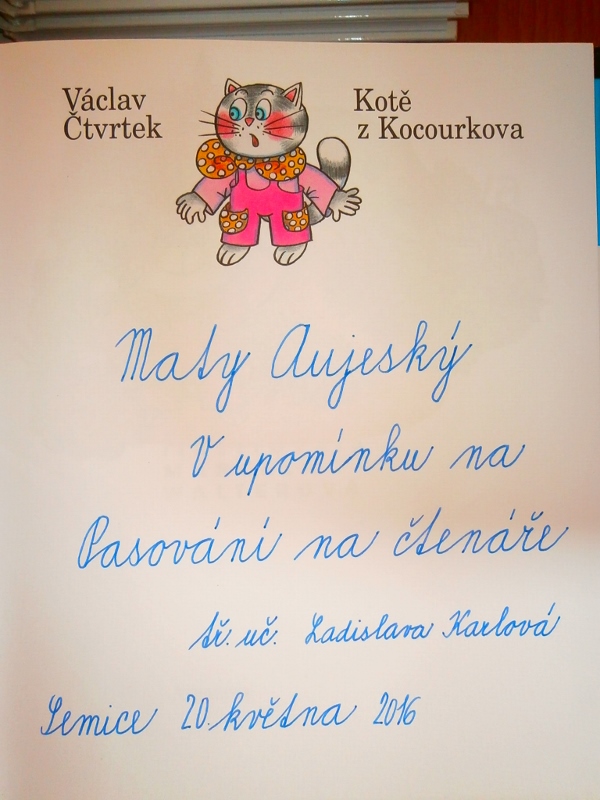 Václav
Čtvrtek
Kotě
z Kocourkova
Maty Aujeský
V upomínku na
Pasování na čtenáře
tř. uč. Ladislava Karlová
Semice 20. května 2016